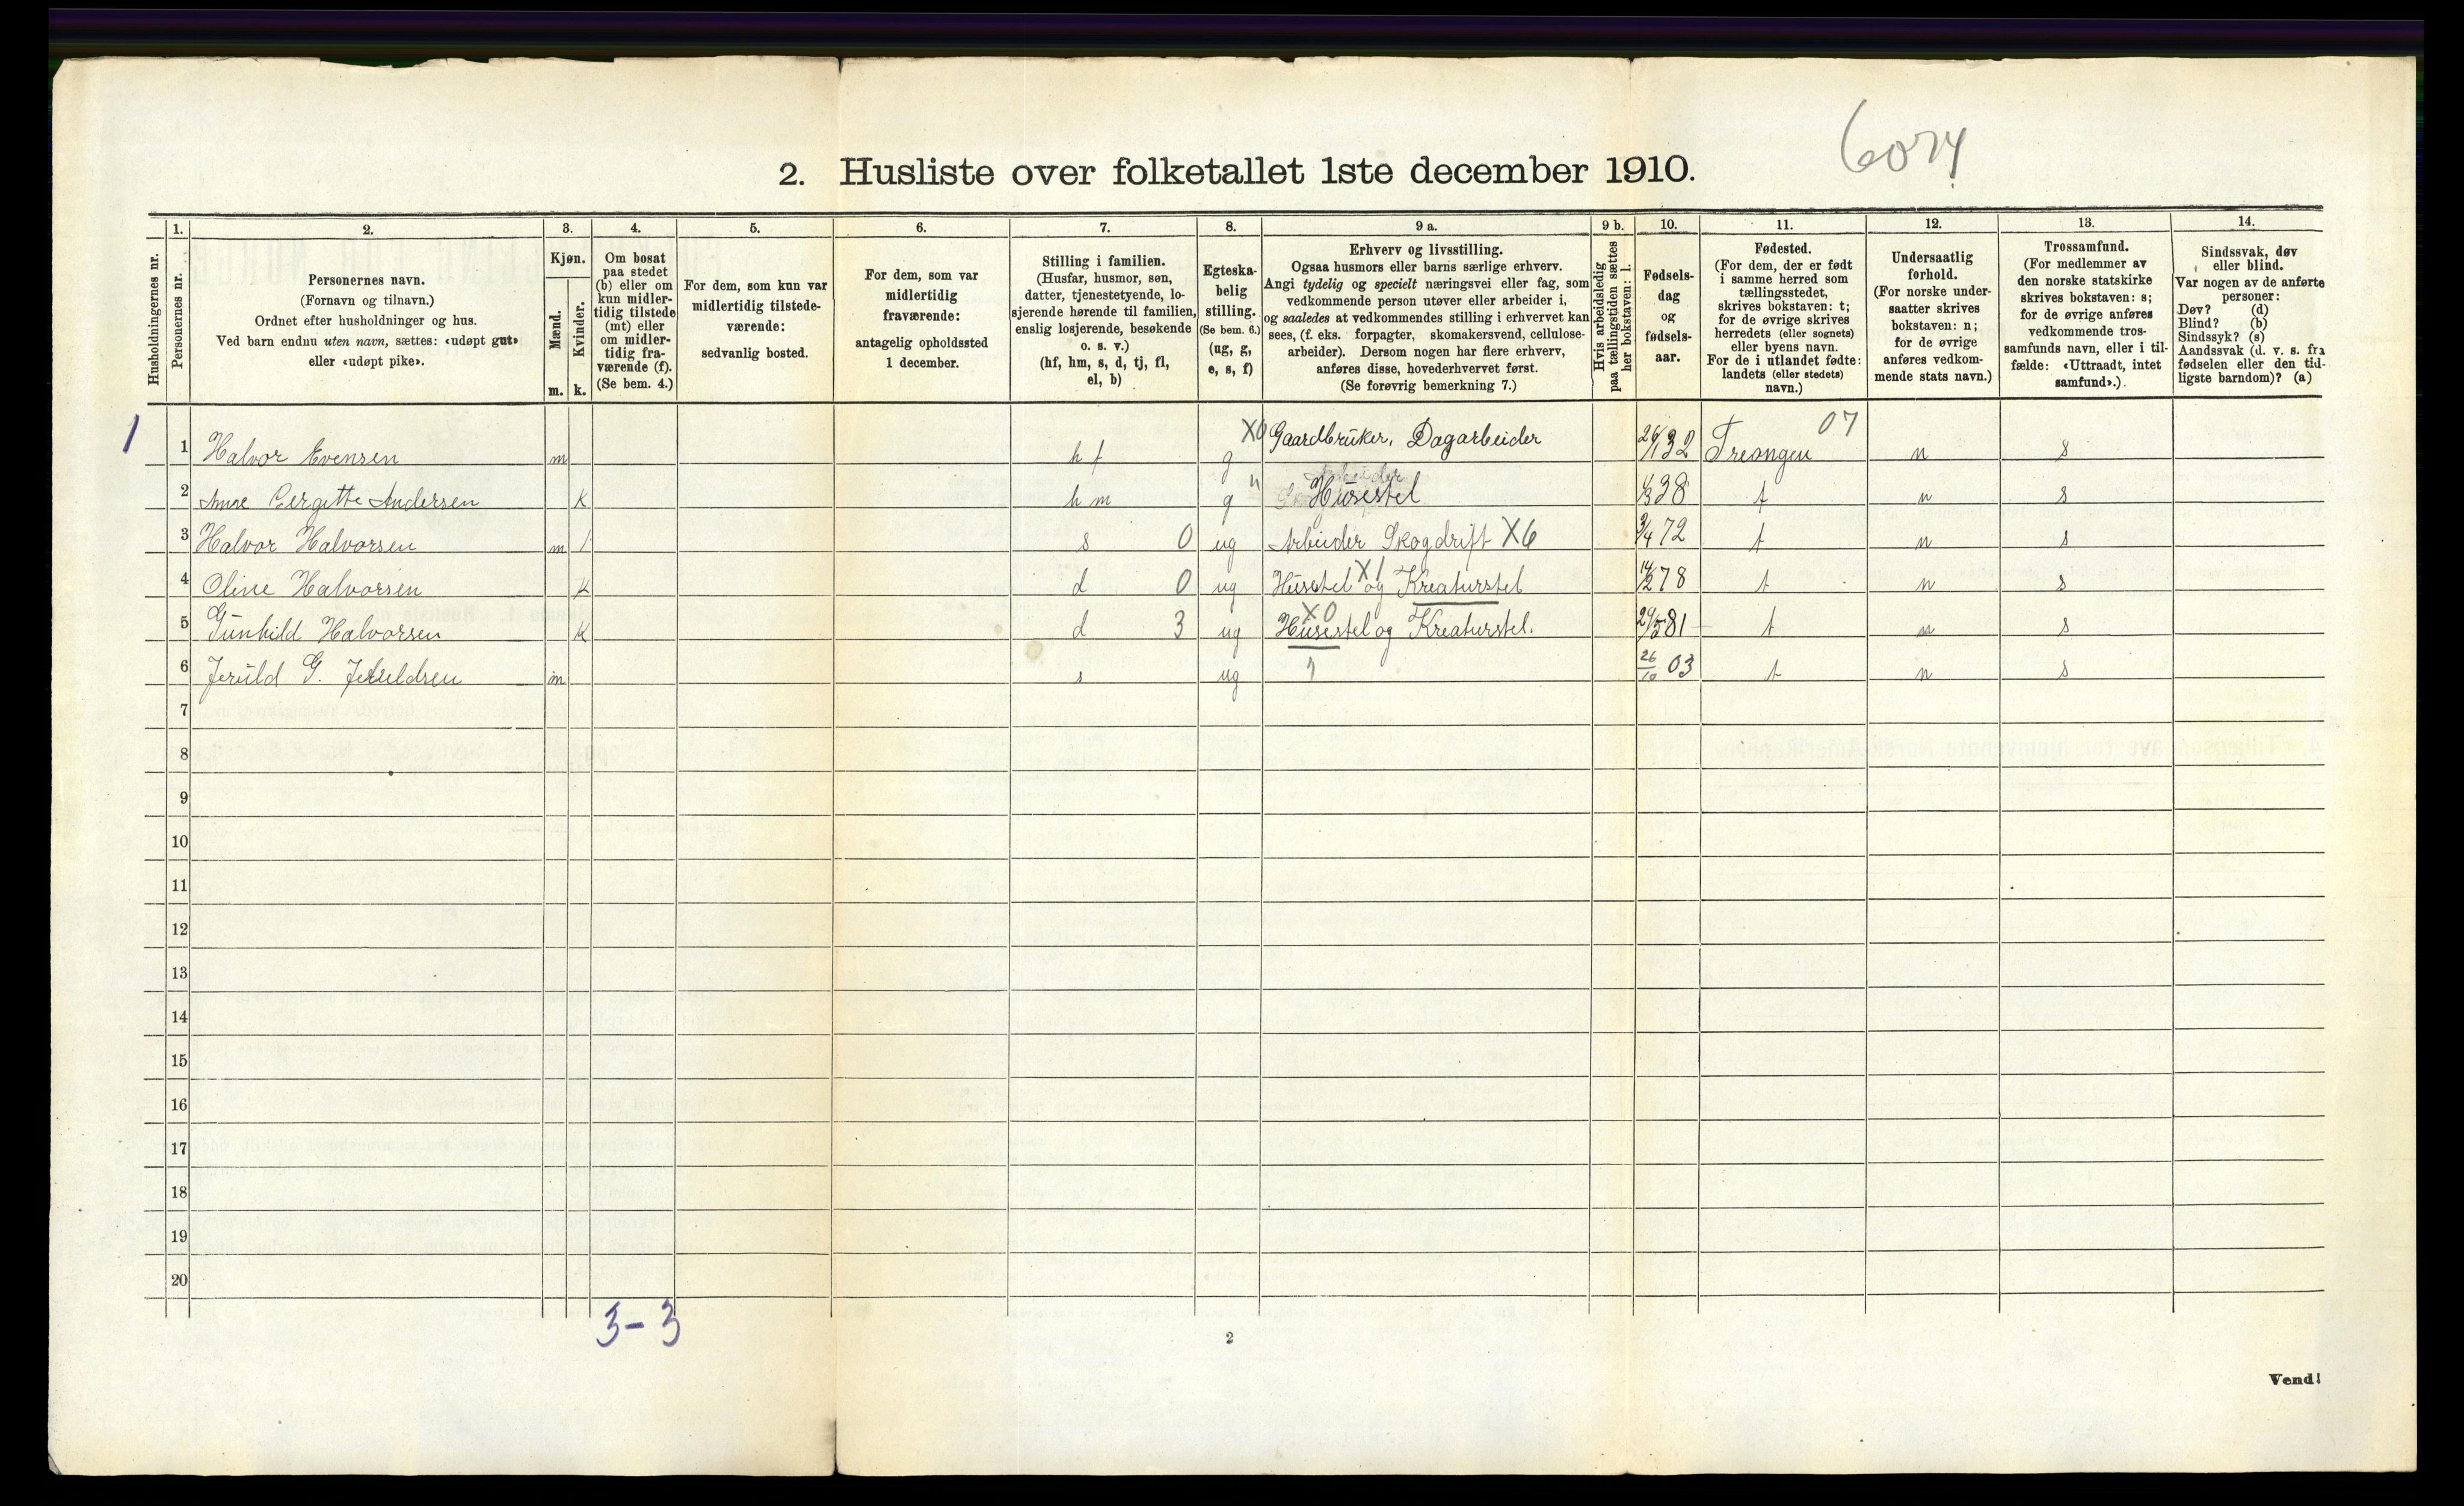 2. Husliste over folketallet 1ste december 1910.
Husholdningernes nr.
1.
Personernes nr.
2.
Personernes navn.
(Fornavn og tilnavn.)
Ordnet efter husholdninger og hus.
Ved barn endnu uten navn, sættes: «udøpt gut»
eller «udøpt pike».
3.
Kjøn.
Mænd.
m.
Kvinder.
k.
4.
Om bosat
paa stedet
(b) eller om
kun midler-
tidig tilstede
(mt) eller
om midler-
tidig fra-
værende (f).
(Se bem. 4.)
5.
For dem, som kun var
midlertidig tilstede-
værende:
sedvanlig bosted.
6.
For dem, som var
midlertidig
fraværende:
antagelig opholdssted
1 december.
7.
Stilling i familien.
(Husfar, husmor, søn,
datter, tjenestetyende, lo-
sjerende hørende til familien,
enslig losjerende, besøkende
o. s. v.)
(hf, hm, s, d, tj, fl,
el, b)
8.
Egteska-
belig
stilling.
(Se bem. 6.)
(ug, g,
e, s, f)
9 a.
Erhverv og livsstilling.
Ogsaa husmors eller barns særlige erhverv.
Angi tydelig og specielt næringsvei eller fag, som
vedkommende person utøver eller arbeider i,
og saaledes at vedkommendes stilling i erhvervet kan
sees, (f. eks. forpagter, skomakersvend, cellulose-
arbeider). Dersom nogen har flere erhverv,
anføres disse, hovederhvervet først.
(Se forøvrig bemerkning 7.)
9 b.
Hvis arbeidsledig
paa tællingstiden sættes
her bokstaven: l.
10.
Fødsels-
dag
og
fødsels-
aar.
11.
Fødested.
(For dem, der er født
i samme herred som
tællingsstedet,
skrives bokstaven: t;
for de øvrige skrives
herredets (eller sognets)
eller byens navn.
For de i utlandet fødte:
landets (eller stedets)
navn.)
12.
Undersaatlig
forhold.
(For norske under-
saatter skrives
bokstaven: n;
for de øvrige
anføres vedkom-
mende stats navn.)
13.
Trossamfund.
(For medlemmer av
den norske statskirke
skrives bokstaven: s;
for de øvrige anføres
vedkommende tros-
samfunds navn, eller i til-
fælde: «Uttraadt, intet
samfund».)
14.
Sindssvak, døv
eller blind.
Var nogen av de anførte
personer:
Døv? (d)
Blind? (b)
Sindssyk? (s)
Aandssvak (d. v. s. fra
fødselen eller den tid-
ligste barndom)? (a)
1 1 Halvor Evensen m hf g X0 Gaardbruker, Dagarbeider 26/1 32 Treongen 07 n s
2 Anne Bergitte Andersen k hm g " Husestel 38 t n s
3 Halvor Halvorsen m s 0 ug Arbeider Skogdrift X6 3/4 72 t n s
4 Oline Halvorsen k d 0 ug Husstel og Kreaturstel X1 14/2 78 t n s
5 Gunhild Halvorsen k d 3 ug X0 Husestel og Kreaturstel. 81 t n s
6 Jeruld G. Jeruldsen m s ug 26/10 03 t n s
7
8
9
10
11
12
13
14
15
16
17
18
19
20
3-3
2
Vend!